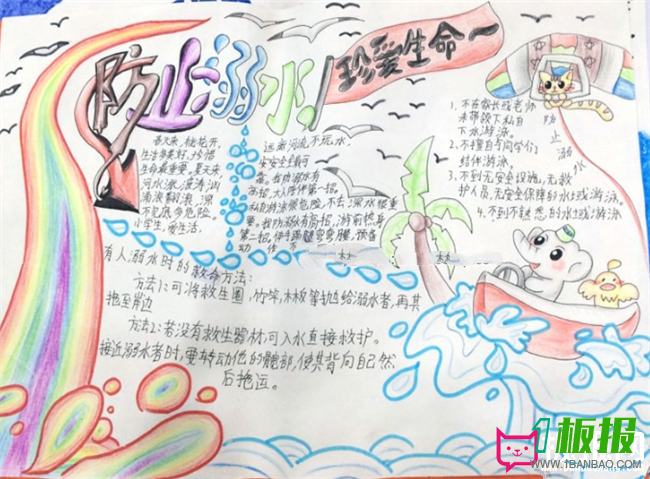 防止溺水
珍爱生命
春天来,桃花开,
生活多美好,珍惜
生命最重要。夏天来,
河水涨,波涛汹
涌浪翻滚,深
不见底多危险,
小学生,爱生活,
远离河流,不玩水,
安安全全最可
我防溺水有
高招,大人陪伴第一招,
私自游泳很危险,不去深水很重
要。我防溺水有高招,游前热身
第二招,伸手
弯弯腰,预备
动作不
1、不在家长或老师
未带领下私自
下水游泳。
2、不擅自与同学们
结伴游泳。
3、不到无安全设施,无救
护人员,无安全保障的水域游泳
4、不到不熟悉的水域游泳
防止溺水
有人溺水时的救命方法:
方法1:可将救生圈,竹竿,木板等抛给溺水者,再其
拖至岸边
方法2:若没有救生器材,可入水直接救护。
接近溺水者时,要转动他的髋部,使其背向自己然
后拖运。
1板报
WWW.1BANBAO.COM